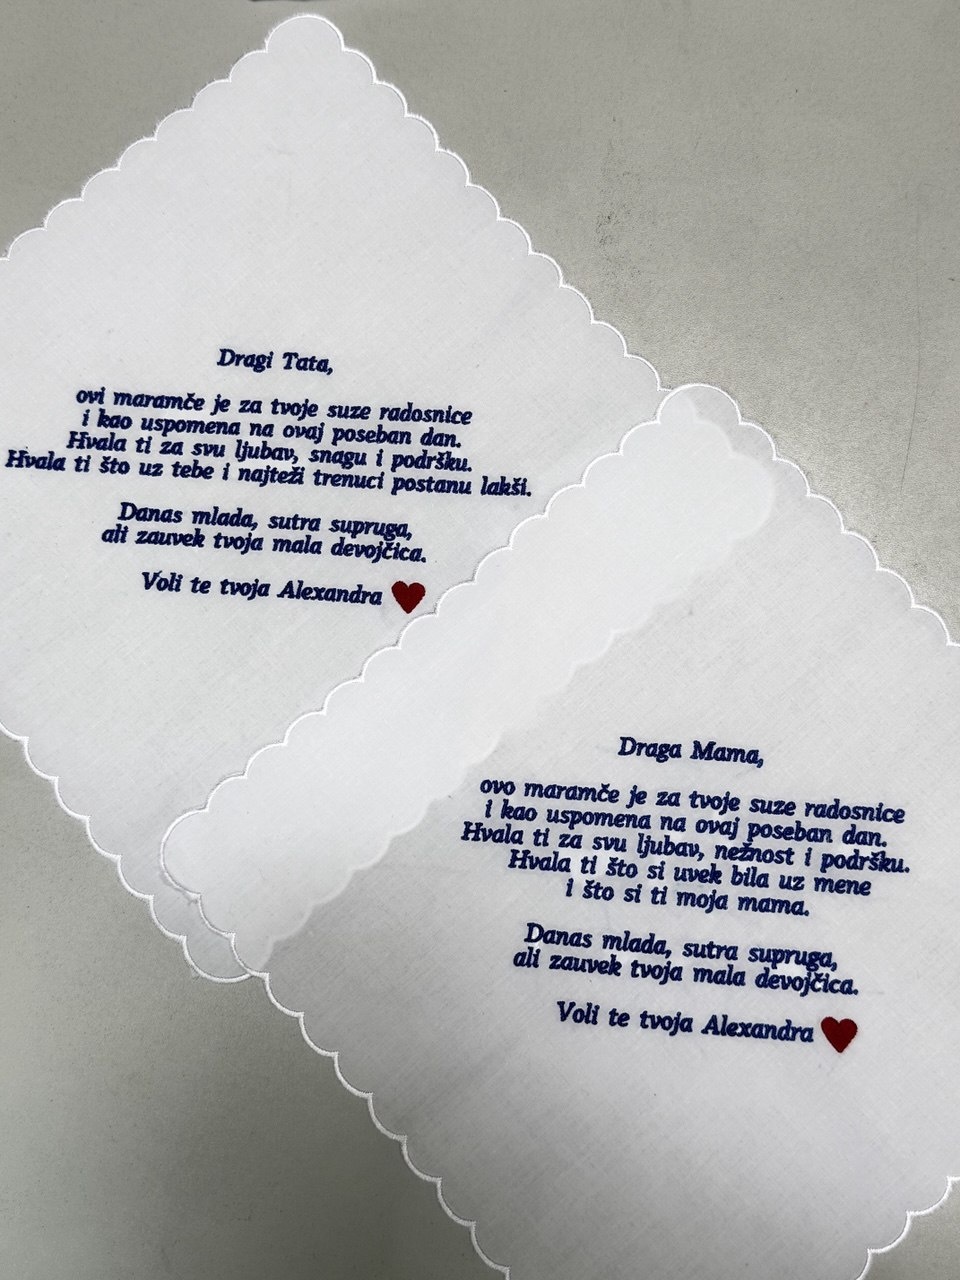 Dragi Tata,
ovi maramče je za tvoje suze radosnice
i kao uspomena na ovaj poseban dan.
Hvala ti za svu ljubav, snagu i podršku.
Hvala ti što uz tebe i najteži trenuci postanu lakši.
Danas mlada, sutra supruga,
ali zauvek tvoja mala devojčica.
Voli te tvoja Alexandra
Draga Mama,
ovo maramče je za tvoje suze radosnice
i kao uspomena na ovaj poseban dan.
Hvala ti za svu ljubav, nežnost i podršku.
Hvala ti što si uvek bila uz mene
i što si ti moja mama.
Danas mlada, sutra supruga,
ali zauvek tvoja mala devojčica.
Voli te tvoja Alexandra